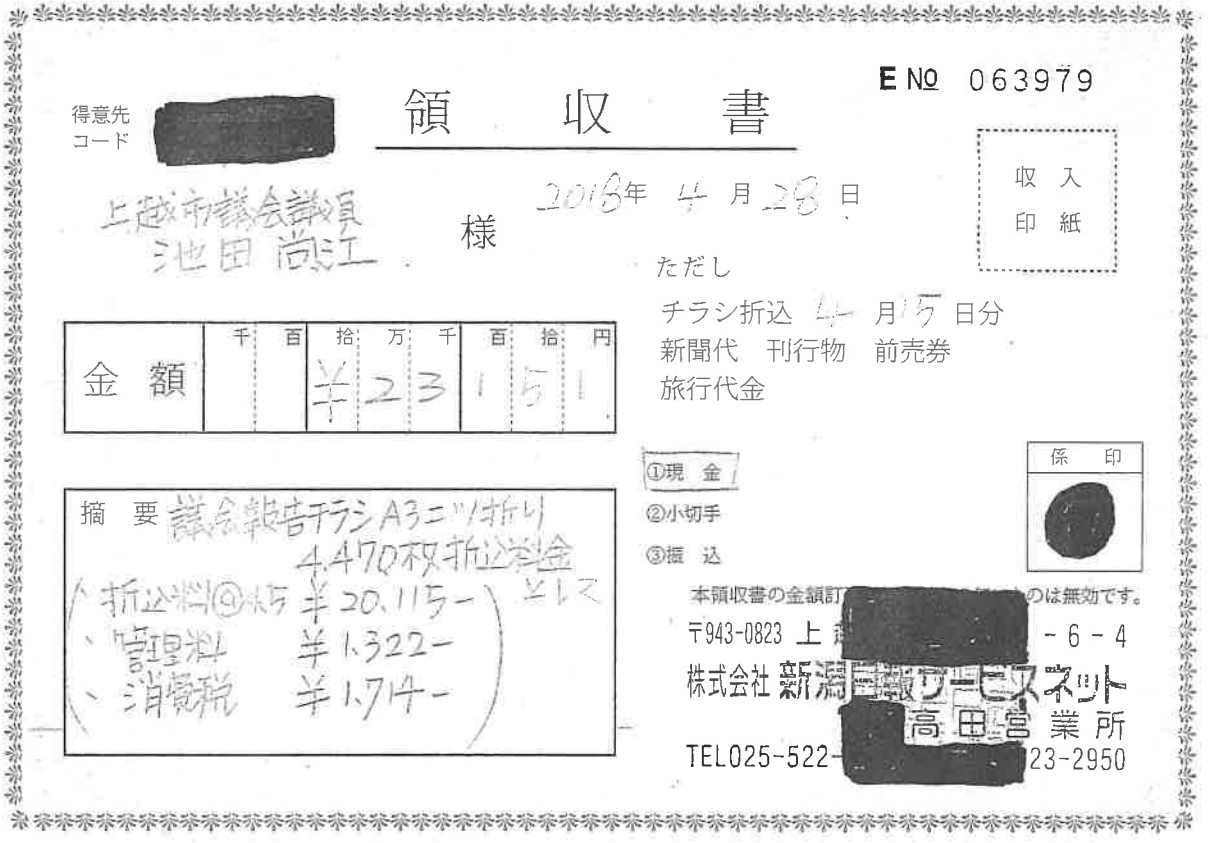 E No 063979
得意先
コード
領 収 書
収 入
印 紙
2018年 4月 28日
上越市議会議員
池田 尚江
様
ただし
チラシ折込 4月15日分
新聞代 刊行物 前売券
旅行代金
金 額
千 百 拾 万 千 百 拾 円
¥23151
①現 金
②小切手
③振 込
係 印
摘 要 議会報告チラシA3二ツ折り
4.470枚折込料金
として
折込料@4.5 ¥20.115-
、管理料 ¥1.322-
、消費税 ¥1.714-
本領収書の金額訂 のは無効です。
〒943-0823 上 -6-4
株式会社 新潟日報サービスネット
高田営業所
TEL025-522- 23-2950